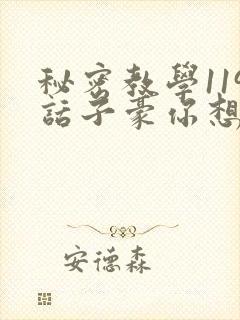 秘密教學119
話子豪你想
安德森